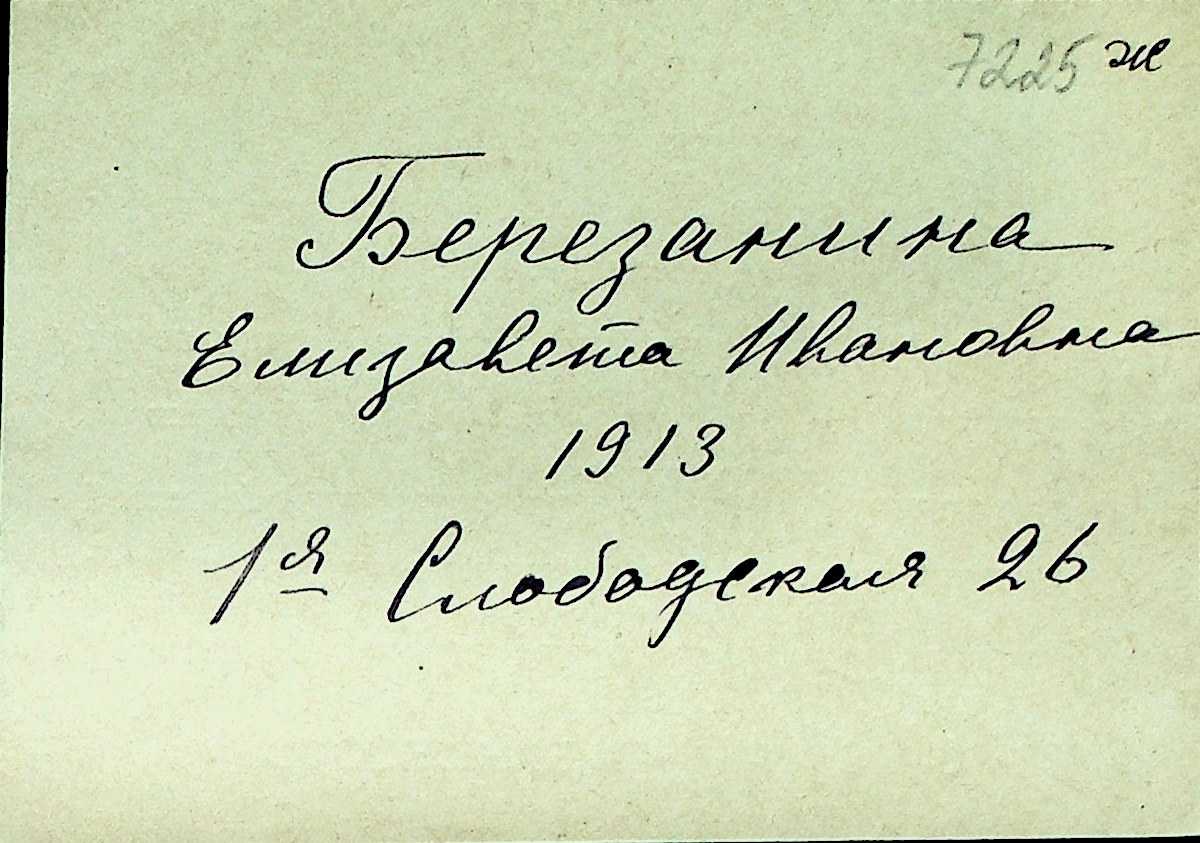 7225 ж
Березанина
Елизавета Ивановна
1913
1я Слободская 26